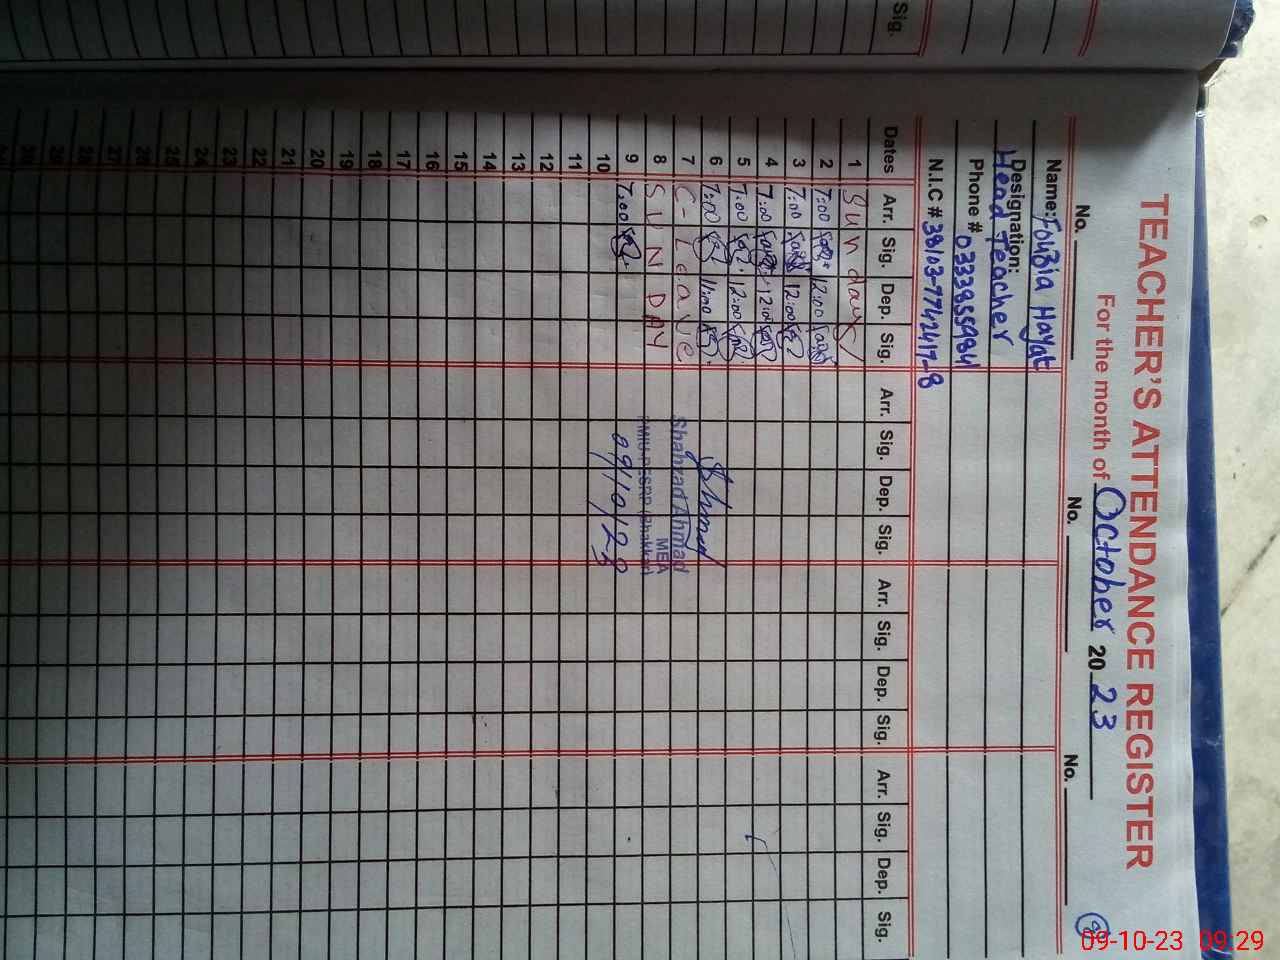 Sig.
TEACHER'S ATTENDANCE REGISTER
For the month of October 2023
No. No. No.
Name: Fouzia Hayat
Designation:
Head Teacher
Phone # 0333855984
N.I.C # 38103-7742417-8
Dates Arr. Sig. Dep. Sig. Arr. Sig. Dep. Sig. Arr. Sig. Dep. Sig. Arr. Sig. Dep. Sig.
1 Sunday
2 7:00 12:00
3 7:00 12:00
4 7:00 12:00
5 7:00 12:00
6 7:00 11:00
7 C-Leave
8 SUNDAY
9 7:00
10
11
12
13
14
15
16
17
18
19
20
21
22
23
24
25
26
27
28
29
30
Shahzad Ahmad
MEA
PMIU-PESRP (Bhakkar)
09/10/23
09-10-23 09:29